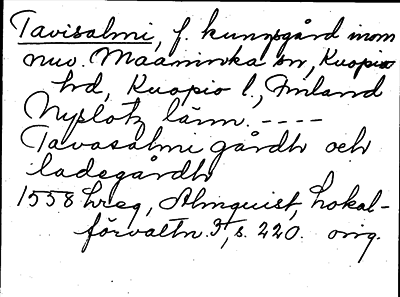 Tavisalmi, f. kungsgård inom
nuv. Maaninka sn, Kuopio
hrd, Kuopio l., Finland
Nyslotz länn. ----
Tavasalmi gårdh och
ladegårdh
1558 hreg, Almquist, Lokal-
förvaltn. I, s. 220. orig.